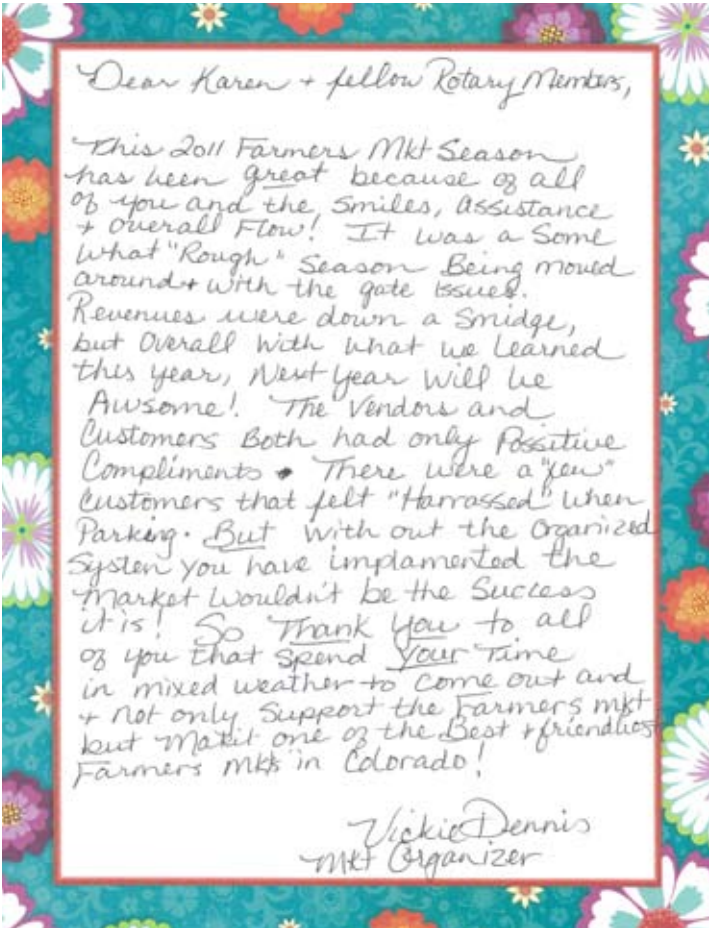 Dear Karen + fellow Rotary Members,
This 2011 Farmers Mkt Season
has been great because of all
of you and the, Smiles, assistance
+ overall Flow! It was a Some
what "Rough" Season Being moved
around + with the gate issues.
Revenues were down a Smidge,
but Overall with what we learned
this year, Next Year will be
Awsome! The Vendors and
Customers Both had only Possitive
Compliments • There were a "few"
Customers that felt "Harrassed" when
Parking. But with out the Organized
System you have implamented the
Market wouldn't be the Success
it is! So Thank You to all
of you that Spend Your Time
in mixed weather to come out and
+ not only Support the Farmers mkt
but Makit one of the Best + friendliest
Farmers mkts in Colorado!
Vickie Dennis
Mkt Organizer